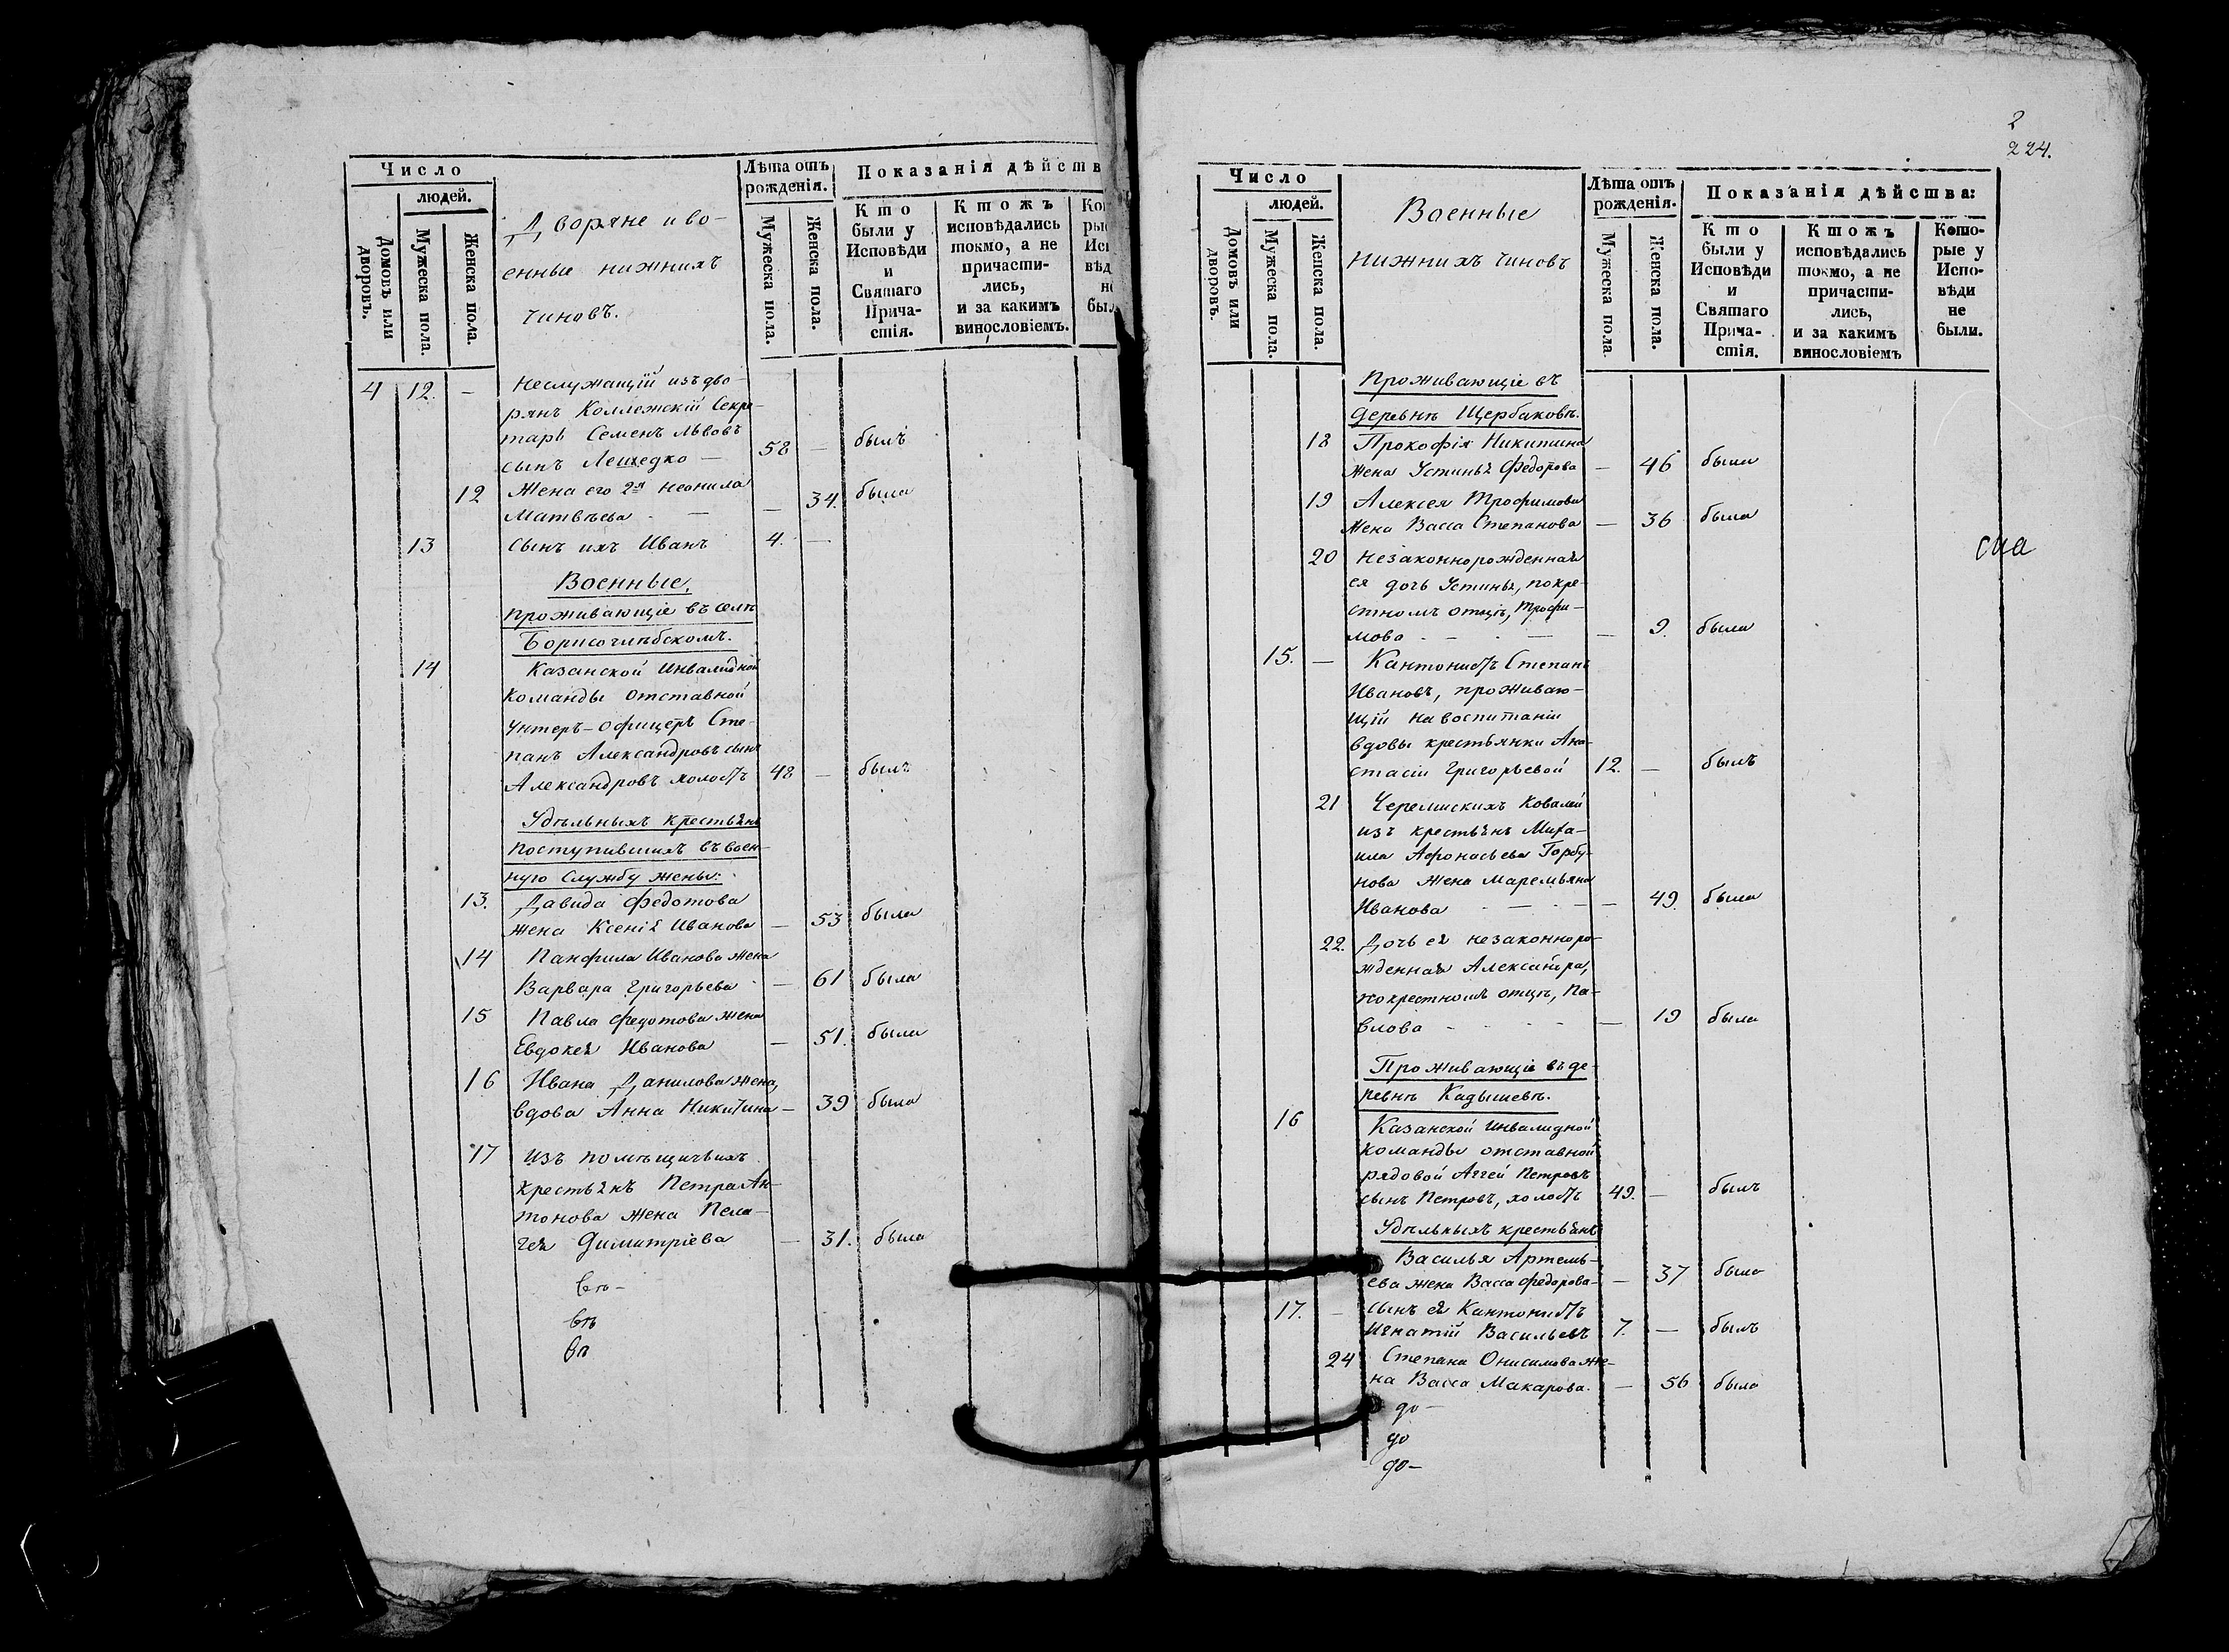 Число
людей.
Домовъ или дворовъ.
Мужеска пола.
Женска пола.
Дворяне и во-
енные нижнихъ
чиновъ.
Лѣта отъ рожденія.
Мужеска пола.
Женска пола.
Показанія дѣйств
Кто были у Исповѣди и Святаго Прича- стія.
Ктожъ исповѣдались токмо, а не причасти- лись, и за какимъ винословіемъ.
4 12. — Неслужащій изъ дво-
рянъ Коллежскій Секре-
тарь Семенъ Львовъ
сынъ — 58 — былъ
12 Жена его 2я Неонила
Матвѣева — — 34. была
13 Сынъ ихъ Иванъ 4. —
Военные,
проживающіе въ селѣ
Борисоглѣбскомъ.
14 Казанской Инвалидной
Команды отставной
Унтеръ-Офицеръ Сте-
панъ Александровъ сынъ
Александровъ холостъ 48 — былъ
Удѣльныхъ крестьянъ
поступившихъ въ воен-
ную службу жены:
13. Давида Федотова
жена Ксенія Иванова — 53 была
14 Панфила Иванова жена
Варвара Григорьева — 61 была
15 Павла Федотова жена
Евдокея Иванова — 51. была
16 Ивана Данилова жена,
вдова Анна Никитина — 39 была
17 Изъ помѣщичьихъ
крестьянъ Петра Ан-
тонова жена Пела-
гея Димитріева — 31. была
въ-
въ
въ
2
224.
Число
людей.
Домовъ или дворовъ.
Мужеска пола.
Женска пола.
Военные
нижнихъ чиновъ
Лѣта отъ рожденія.
Мужеска пола.
Женска пола.
Показанія дѣйства:
Кто были у Исповѣди и Святаго Прича- стія.
Ктожъ исповѣдались токмо, а не причасти- лись, и за какимъ винословіемъ
Кото- рые у Испо- вѣди не были.
Проживающіе въ
деревнѣ Щербаковѣ.
18 Прокофія Никитина
жена Устинья Федорова — 46 была
19 Алексея Трофимова
жена Васса Степанова — 36 была
20 Незаконнорожденная
ея дочь Устинья, по кре-
стномъ отцѣ, Трофи-
мова — — 9. была
15. — Кантонистъ Степанъ
Ивановъ, проживаю-
щій на воспитаніи
вдовы крестьянки Ана-
стасіи Григорьевой 12. — былъ
21 Черемискихъ Ковалей
изъ крестьянъ Миха-
ила Афонасьева Горбу-
нова жена Маремьяна
Иванова — — 49. была
22. Дочь ея незаконноро-
жденная Александра,
по крестномъ отцѣ, Па-
влова — 19 была
Проживающіе въ де-
ревнѣ Кадышевѣ.
16 Казанской Инвалидной
команды отставной
рядовой Аггей Петровъ
сынъ Петровъ, холостъ 49. — былъ
Удѣльныхъ крестьянъ
Василья Артемь-
ева жена Васса Федорова — 37 была
17. — Сынъ ея Кантонистъ
Игнатій Васильевъ 7. — былъ
24 Степана Онисимова же-
на Васса Макарова. — 56 была
до-
до
до-